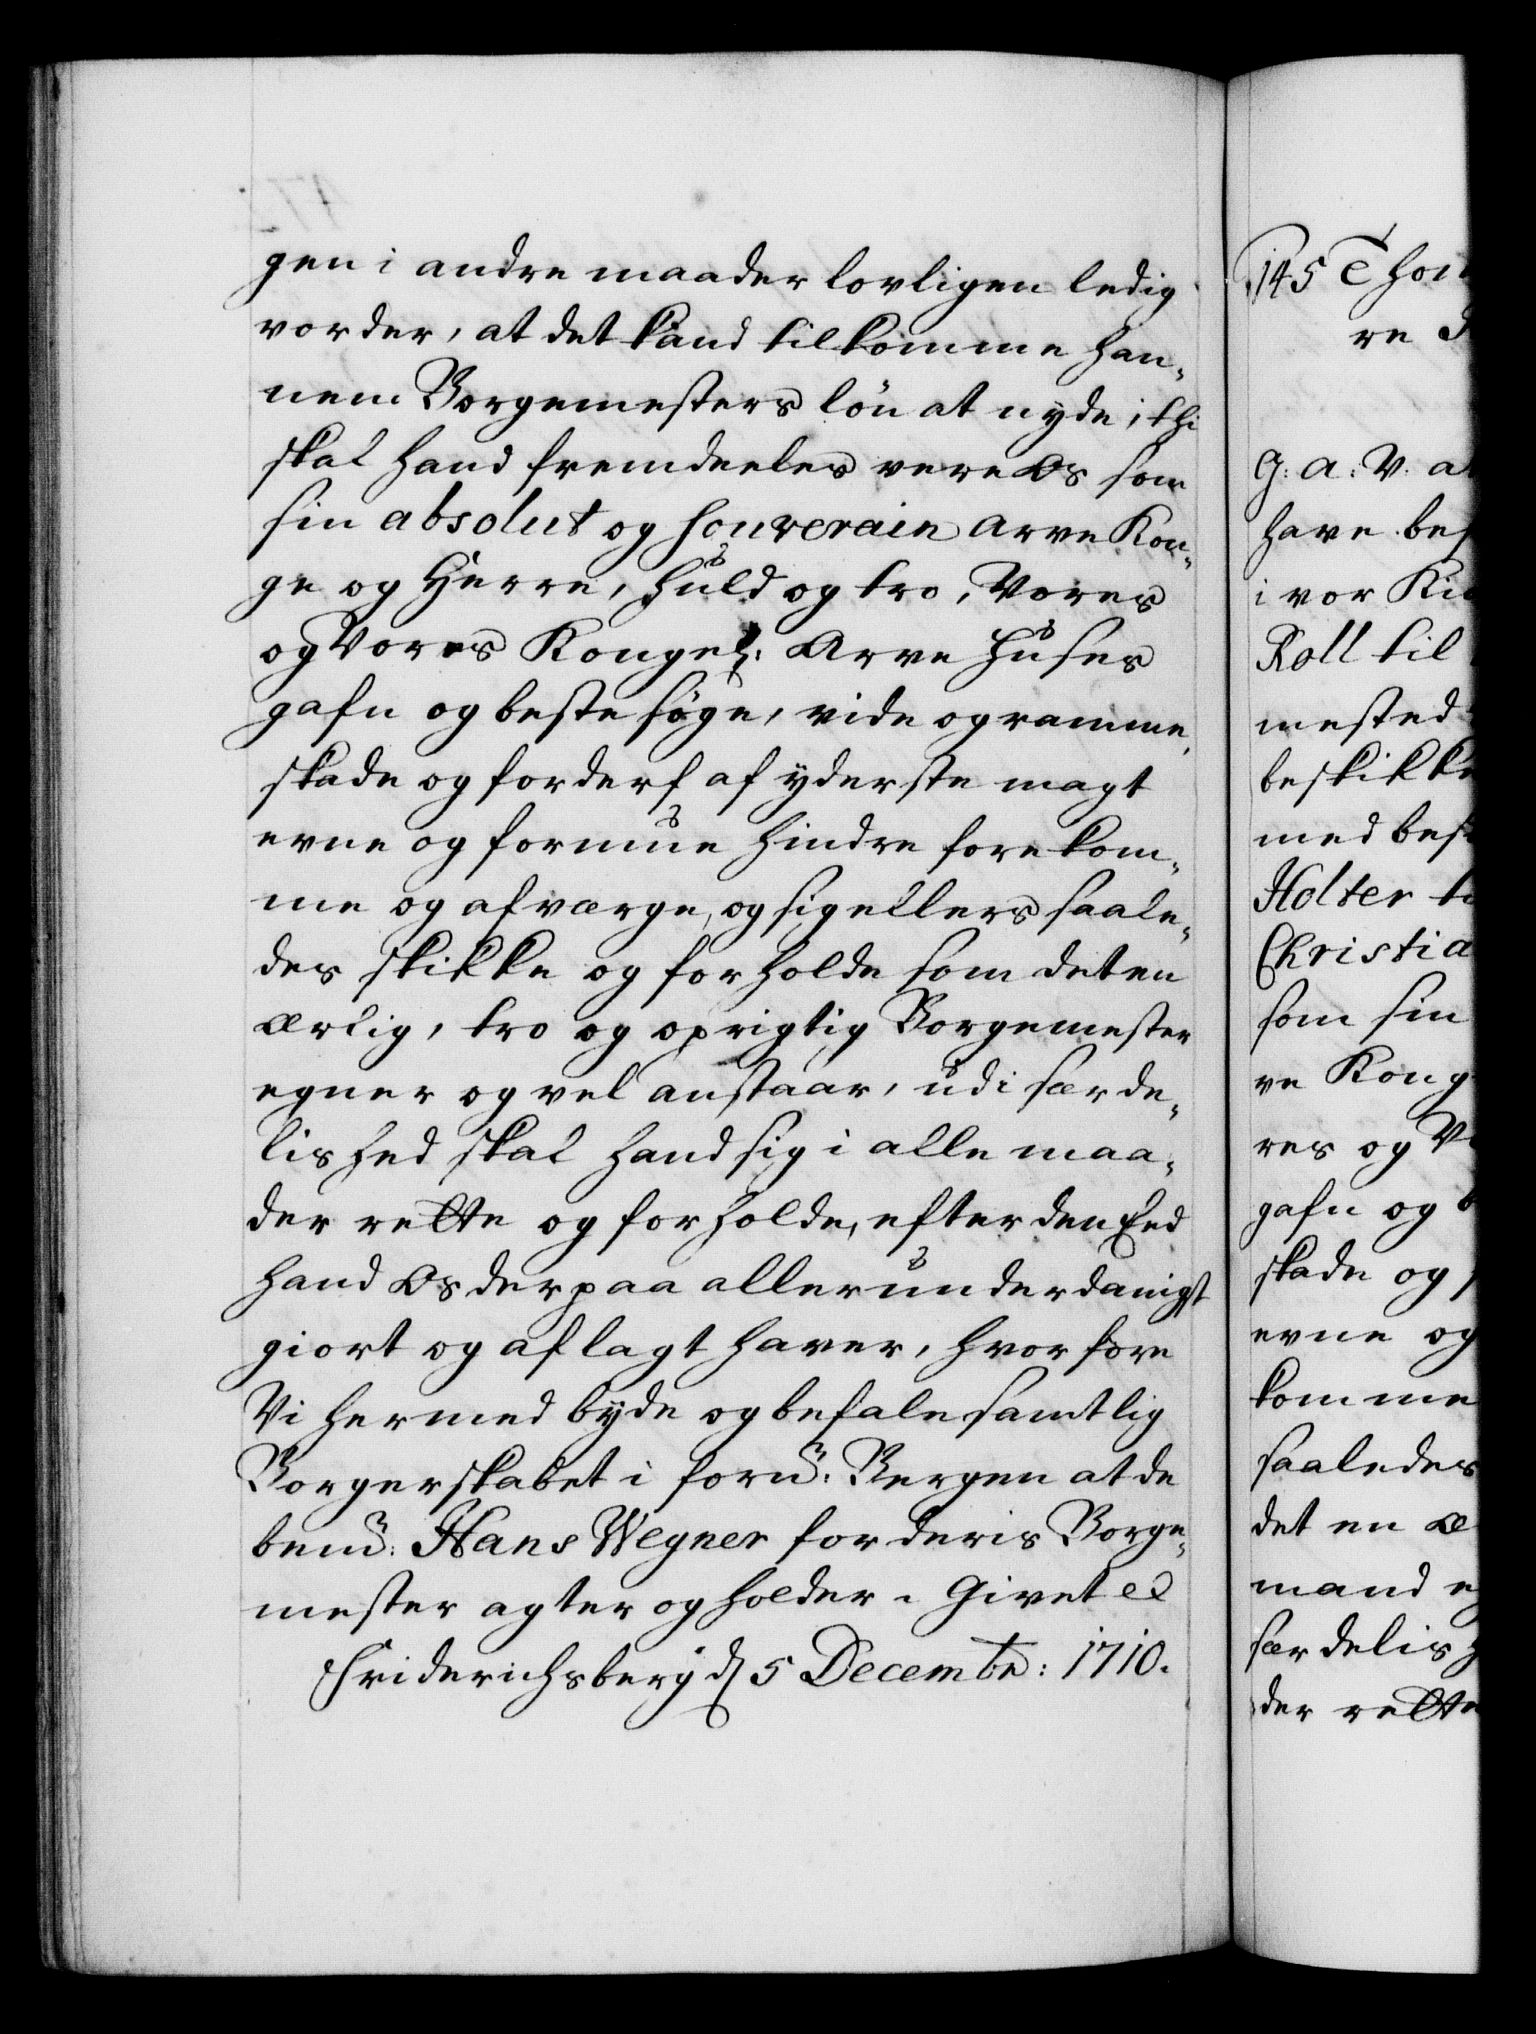 gen i andre maader lovligen ledig
vorder, at det kand tilkomme han„
nem Borgemesters lön at nyde; thi
skal hand fremdeeles vere Os som
sin absolut og souverain Arve Kon„
ge og Herre, huld og tro, Vores
og Vores Kongel: Arve Huses
gafn og beste söge, vide og ramme,
skade og forderf af yderste magt
evne og formue hindre forekom„
me og afværge, og sig ellers saale„
des skikke og forholde som det en
ærlig, tro og oprigtig Borgemester
egner og vel anstaar, udi særde„
lished skal hand sig i alle maa„
der rette og forholde, efter den Eed
hand Os derpaa allerunderdanigst
giort og aflagt haver, hvorfore
Vi hermed byde og befale samtlig
Borgerskabet i forn: Bergen at de
bem: Hans Wegner for deris Borge„
mester agter og holder. Givet
Friderichsberg d 5 Decembr: 1710.
145 Thom
re
G: A: V: a
have bes
i vor Ki
Roll til
mested
beskikke
med best
Holter t
Christia
som sin
ve Kong
res og V
gafn og b
skade og f
evne og
komme
saaledes
det en æ
mand eg
særdelish
der rette